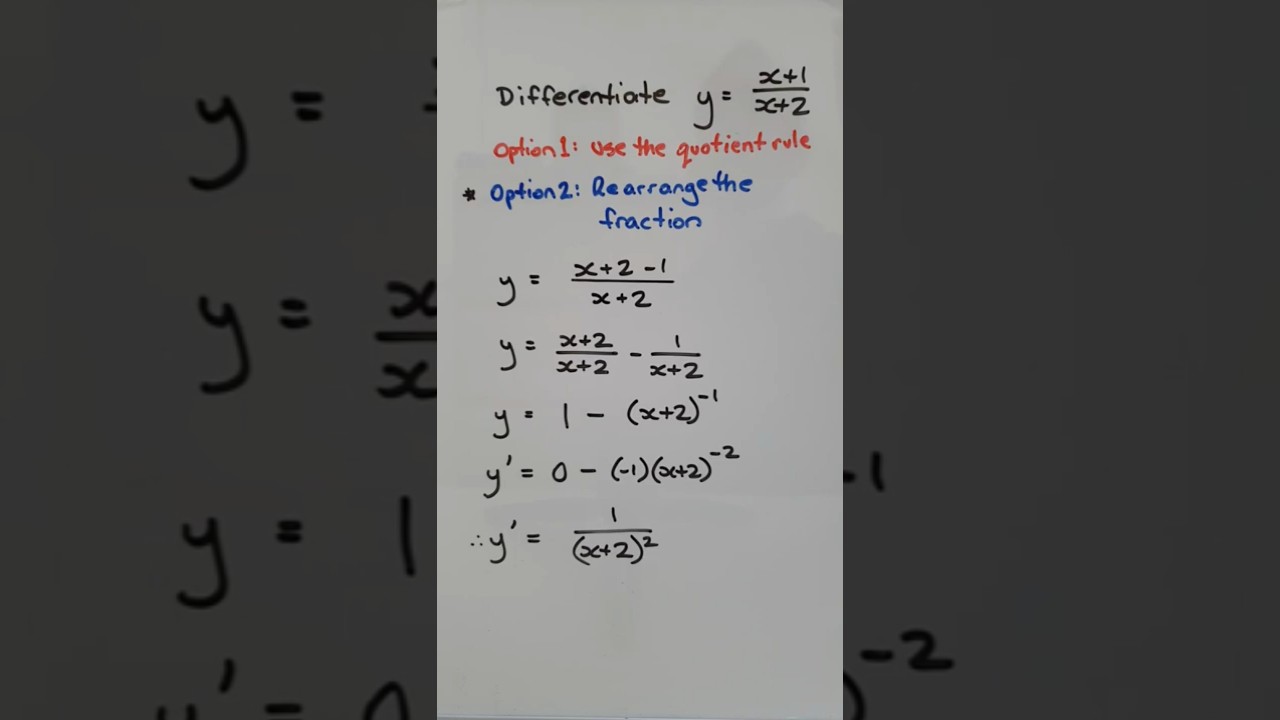 Differentiate y = x+1/x+2
Option 1: use the quotient rule
* Option 2: Rearrange the
fraction
y = x+2-1/x+2
y = x+2/x+2 - 1/x+2
y = 1 - (x+2)⁻¹
y' = 0 - (-1)(x+2)⁻²
∴ y' = 1/(x+2)²